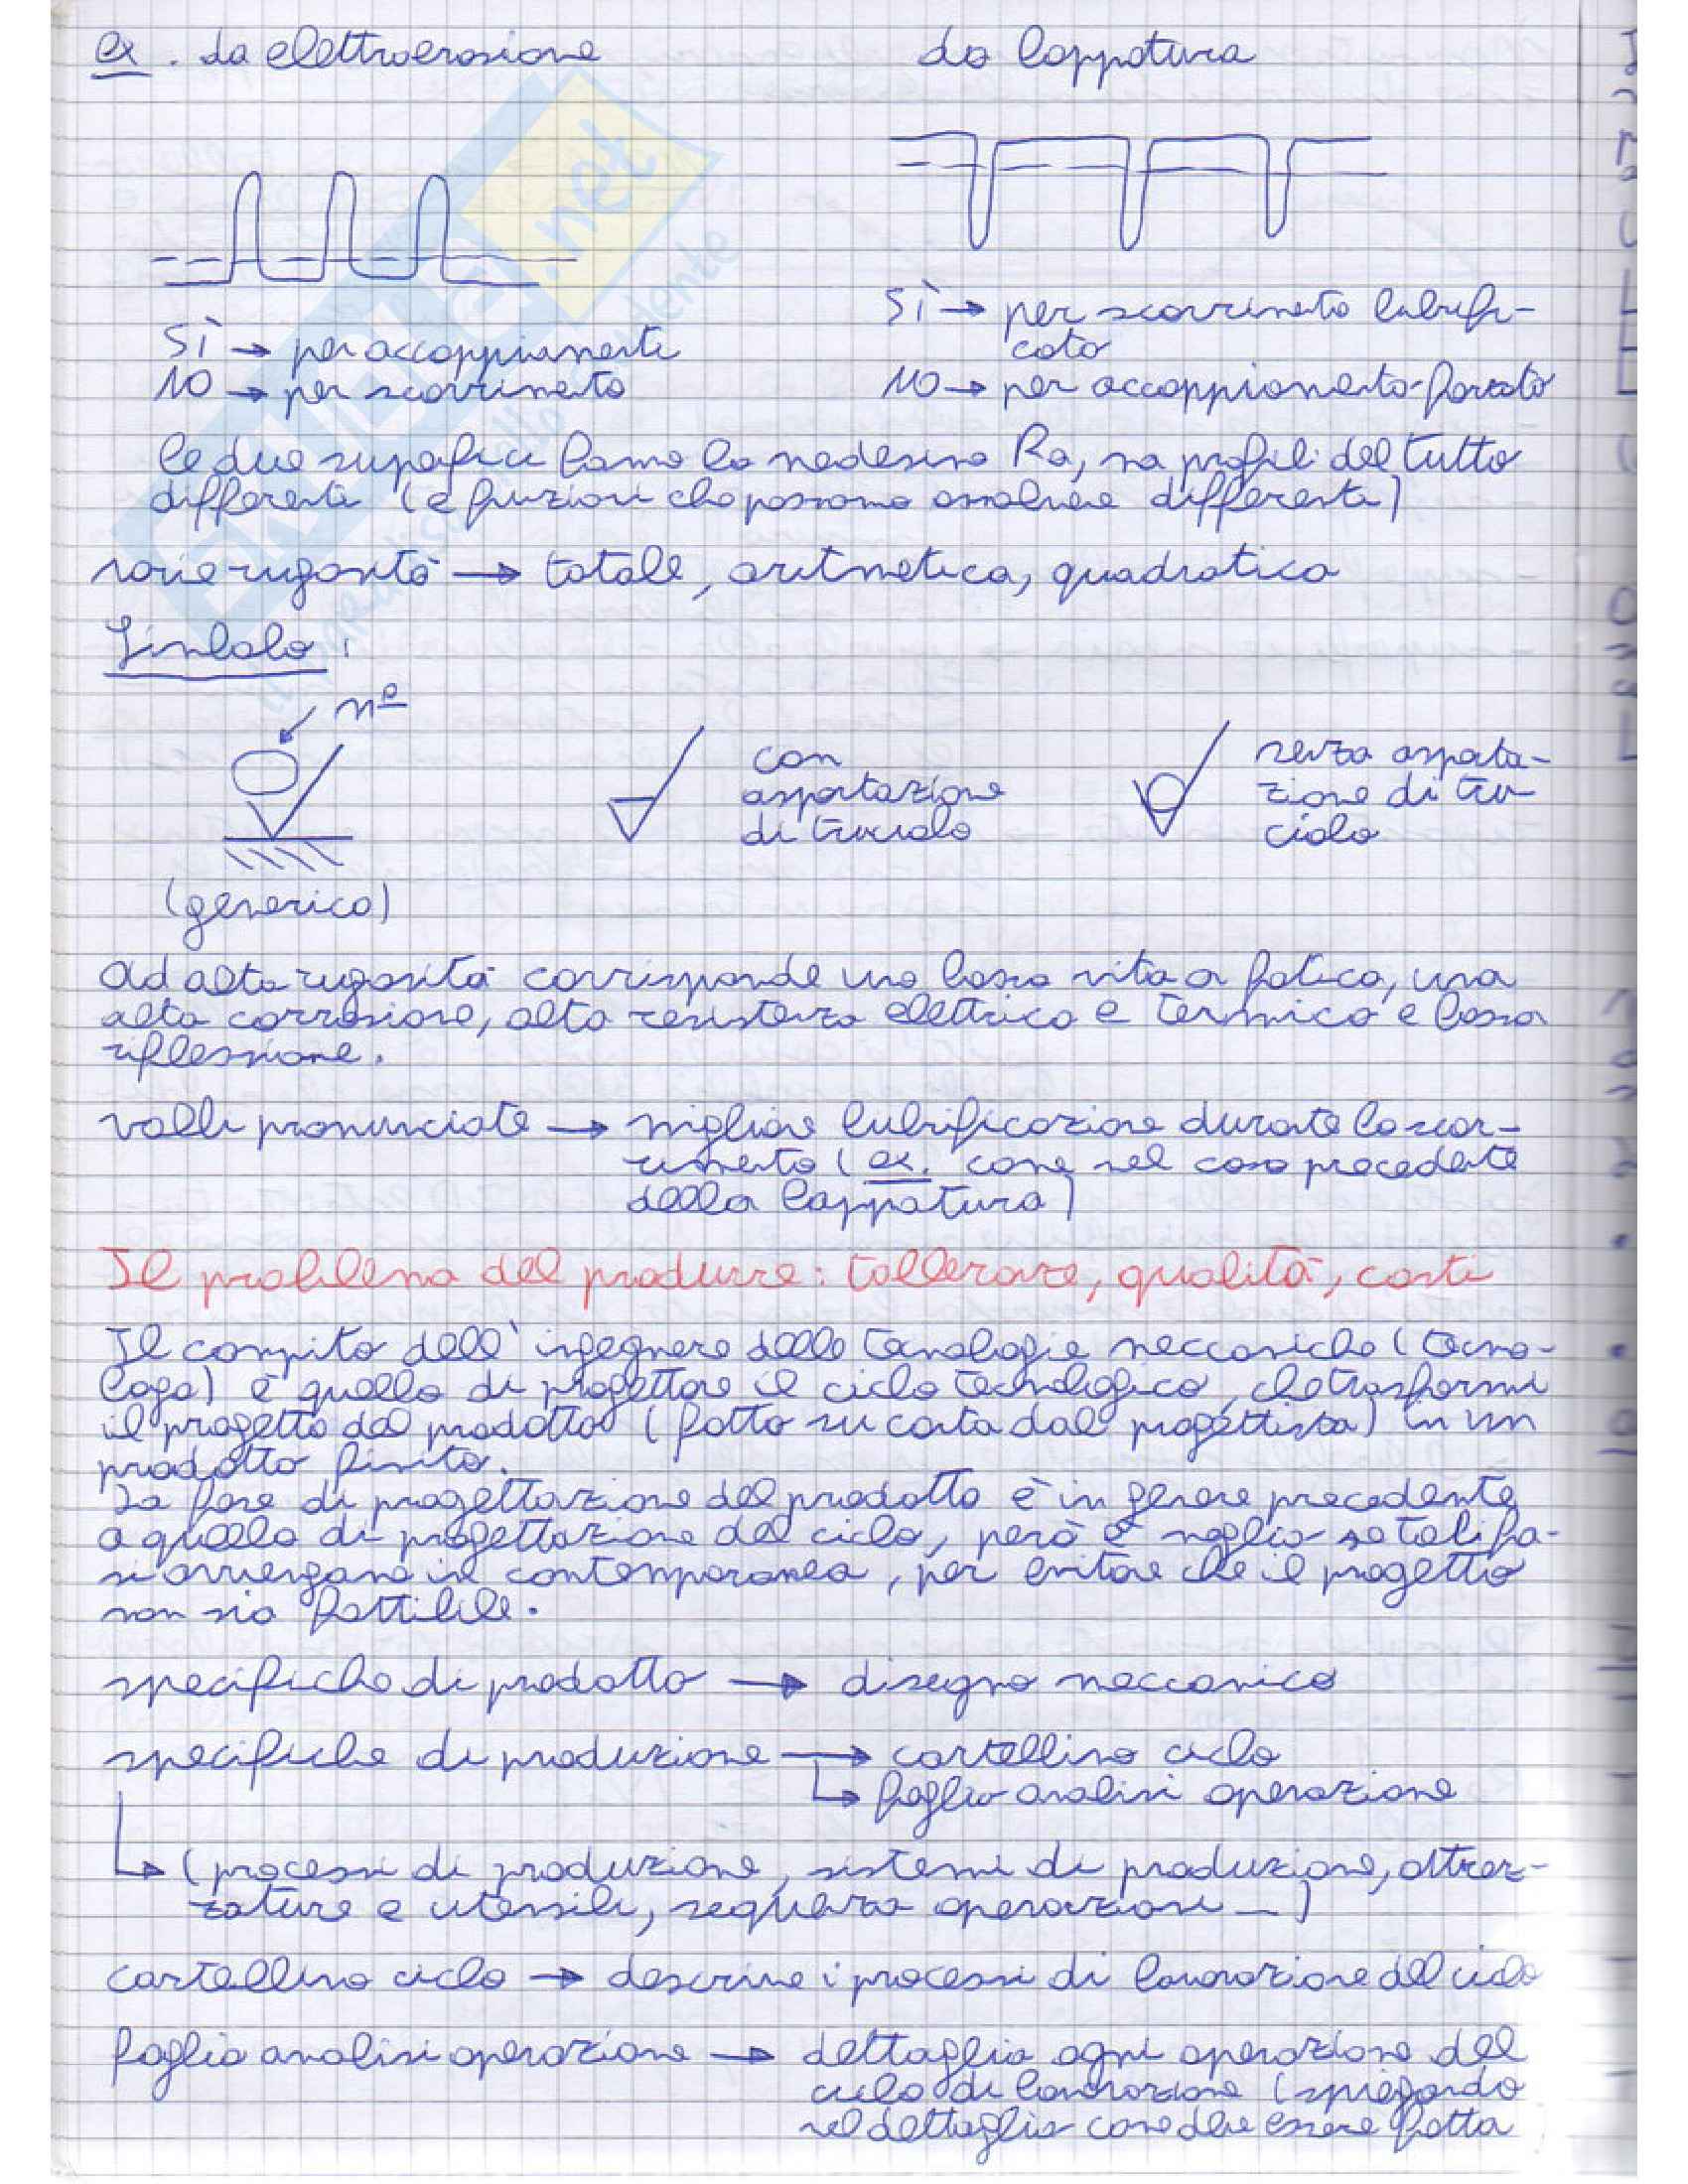 ex. da elettroerosione
da lappatura
SÌ → per accoppiamenti
NO → per scorrimento
SÌ → per scorrimento lubrifi-
cato
NO → per accoppiamento forzato
le due superfici hanno la medesima Ra, ma profili del tutto
differenti (e funzioni che possono assolvere differenti)
varie rugosità → totale, aritmetica, quadratica
Simbolo:
nº
(generico)
con
asportazione
di truciolo
senza asporta-
zione di tru-
ciolo
Ad alta rugosità corrisponde una bassa vita a fatica, una
alta corrosione, alta resistenza elettrica e termica e bassa
riflessione.
valli pronunciate → migliore lubrificazione durante lo scor-
rimento (ex. come nel caso precedente
della lappatura)
Il problema del produrre: tolleranze, qualità, costi
Il compito dell'ingegnere delle tecnologie meccaniche (tecno-
logo) è quello di progettare il ciclo tecnologico, che trasformi
il progetto del prodotto (fatto su carta dal progettista) in un
prodotto finito.
La fase di progettazione del prodotto è in genere precedente
a quella di progettazione del ciclo, però è meglio se tali fa-
si avvengano in contemporanea, per evitare che il progetto
non sia fattibile.
specifiche di prodotto → disegno meccanico
specifiche di produzione → cartellino ciclo
↳ foglio analisi operazione
↳ (processi di produzione, sistemi di produzione, attrez-
zature e utensili, sequenza operazioni ...)
cartellino ciclo → descrive i processi di lavorazione del ciclo
foglio analisi operazione → dettaglia ogni operazione del
ciclo di lavorazione (spiegando
nel dettaglio come deve essere fatta